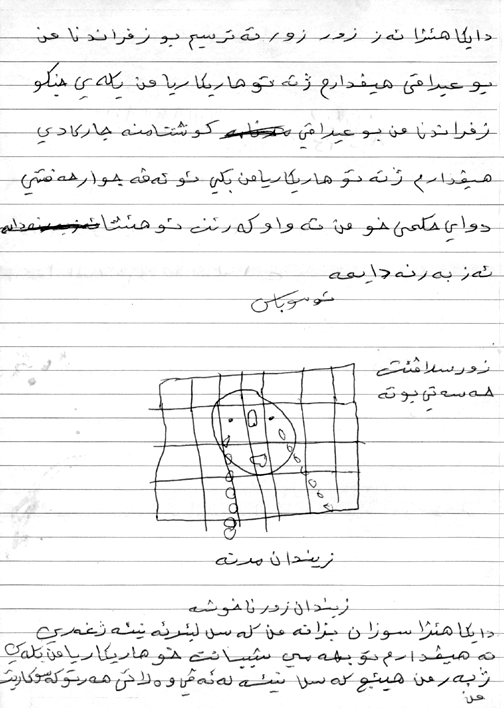 دایکا هێژا ئەز زور زور ئە ترسیم بو زفراندنا من
بو عیراقێ هیڤدارم ژ تە تو هاریکاریا من بکەی چنکو
زفراندنا من بو عیراقێ کوشتامنە جارکادی
هیڤدارم ژ تە تو هاریکاریا من بکی ئو ئەڤە چوار حەفتی
دوای حکمی خو من تە واو کە رئت ئو هێشتا
ئەز بەر نە دایمە
ئو سوپاس
زور سلاڤێت
حە سەنی بو تە
زیندان مرنە
زیندان زور ناخوشە
دایکا هێژا سوزان بزانە من کە س ل ئیرە نینە ژغەری
تە هیڤدارم تو بچە سی تبیانت خو هاریکاریا من بکەی
ژبەر من هیچ کە س نینە لە ئەڤی وە لاتی هەر تو کە
من